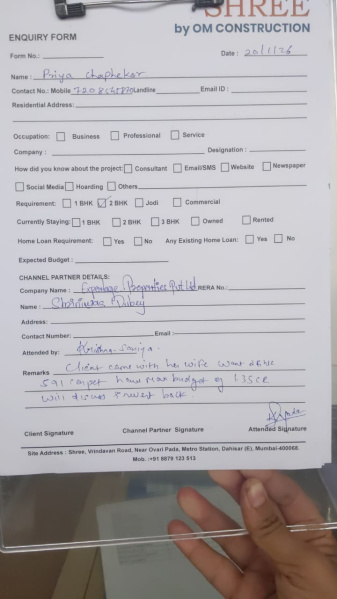 SHREE
by OM CONSTRUCTION
ENQUIRY FORM
Form No.: Date: 20/1/26
Name: Priya Chaphekar
Contact No.: Mobile Landline Email ID:
Residential Address:
Occupation: Business Professional Service
Company: Designation:
How did you know about the project: Consultant Email/SMS Website Newspaper
Social Media Hoarding Others
Requirement: 1 BHK 2 BHK Jodi Commercial
Currently Staying: 1 BHK 2 BHK 3 BHK Owned Rented
Home Loan Requirement: Yes No Any Existing Home Loan: Yes No
Expected Budget:
CHANNEL PARTNER DETAILS:
Company Name: Properties Pvt Ltd RERA No.:
Name: Dubey
Address:
Contact Number: Email:
Attended by:
Remarks Client came with his wife want 2BHK
591 carpet have max budget of
will discuss & revert back
Client Signature Channel Partner Signature Attended Signature
Site Address: Shree, Vrindavan Road, Near Ovari Pada, Metro Station, Dahisar (E), Mumbai-400068.
Mob.: +91 8879 123 513